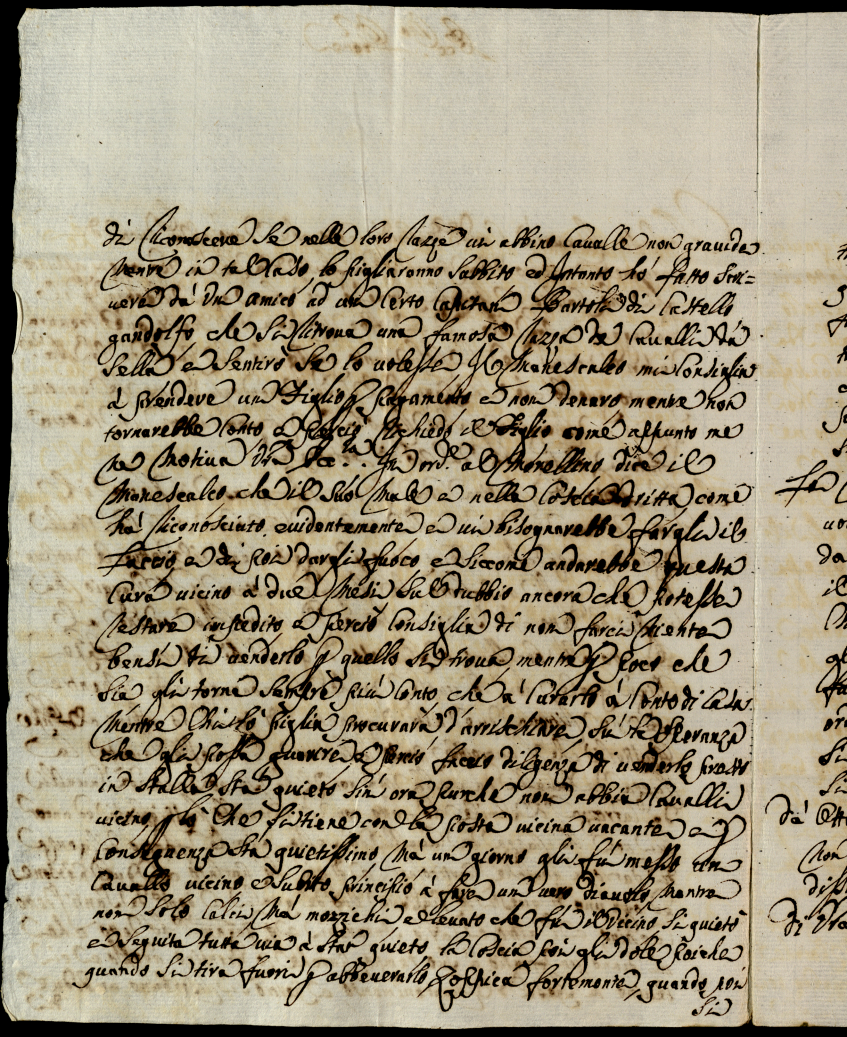 di riconoscere se nelle loro razze vi abbino Cavalle non gravide
mentre in tal caso lo pigliaranno subbito ed intanto hò fatto scri=
vere dà un amico ad un certo Capitan Bartoli di Castello
gandolfo che si ritrova una famosa razza de Cavalli dà
sella e sentirò se lo volesse Il Manescalco mi consiglia
à prendere un Figlio p pagamento e non denaro mentre non
tornarebbe conto e perciò richiedo il Figlio come appunto me
ne motiva V.ra Ecc.za. In ord.e al Morellino dice il
Manescalco che il suo male è nella Coscia dritta, come
hà riconosciuto evidentemente e vi bisognarebbe fargli il
laccio e di poi dargli fuoco e siccome andarebbe questa
cura vicino à due mesi sul dubbio ancora che potesse
restare impedito e perciò consiglia di non farci niente
bensì di venderlo p quello si trova mentre p poco che
sia gli torna sempre più conto che à curarlo à conto di Casa
mentre chi lo piglia procurarà d'arrischiare sù la speranza
che gli possa guarire e perciò faccio diligenza di venderlo presto
in stalla stà quieto sin ora purche non abbia Cavalli
vicino p lo che si tiene con la posta vicina vacante e p
conseguenza stà quietissimo mà un giorno gli fù messo un
Cavallo vicino e subito principiò à fare un vero diavolo mentre
non solo calci mà mozzichi e levato che fù il vicino si quietò
e seguita tutta via à star quieto la Coscia poi gli dole poiche
quando si tira fuori p abbeverarlo zoppica fortemente, quando poi
si